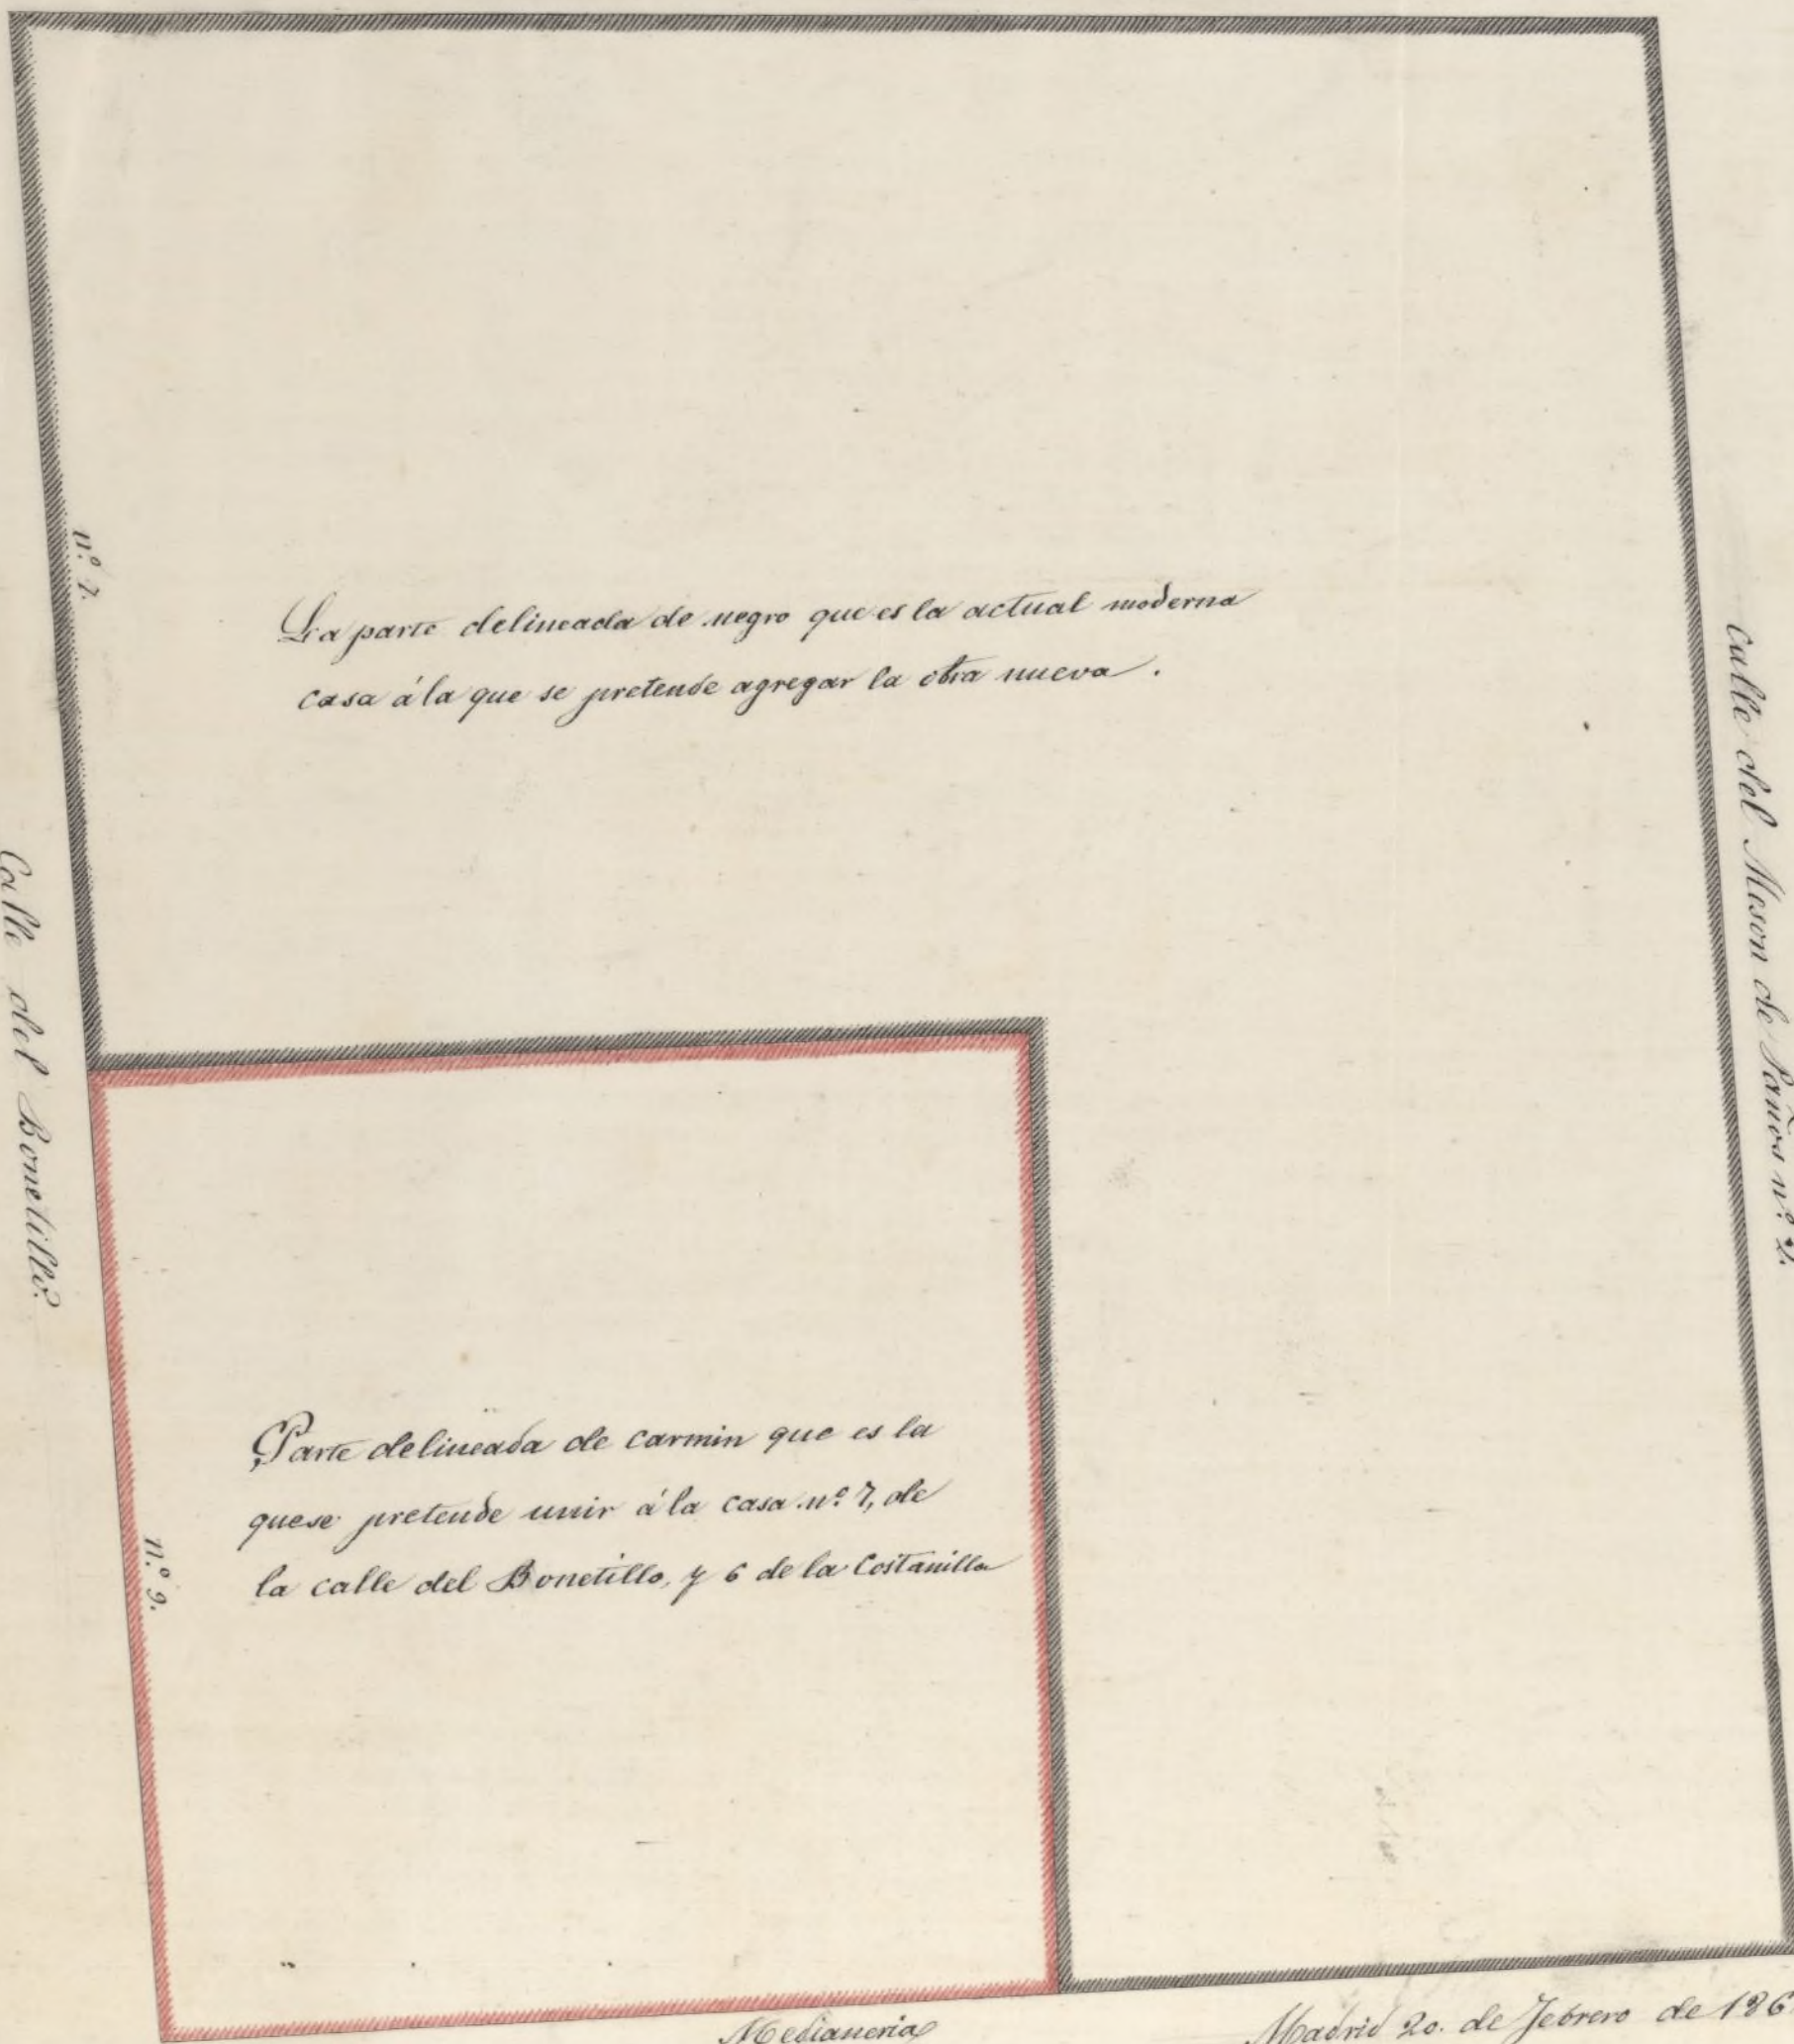 n.º 7.
La parte delineada de negro que es la actual moderna
casa á la que se pretende agregar la obra nueva.
Calle del Meson de Paños nº. 2.
Calle del Bonetillo
Parte delineada de carmin que es la
que se pretende unir á la casa nº. 7, de
la calle del Bonetillo, y 6 de la Costanilla
n.º 9.
Medianeria
Madrid 20. de Febrero de 186